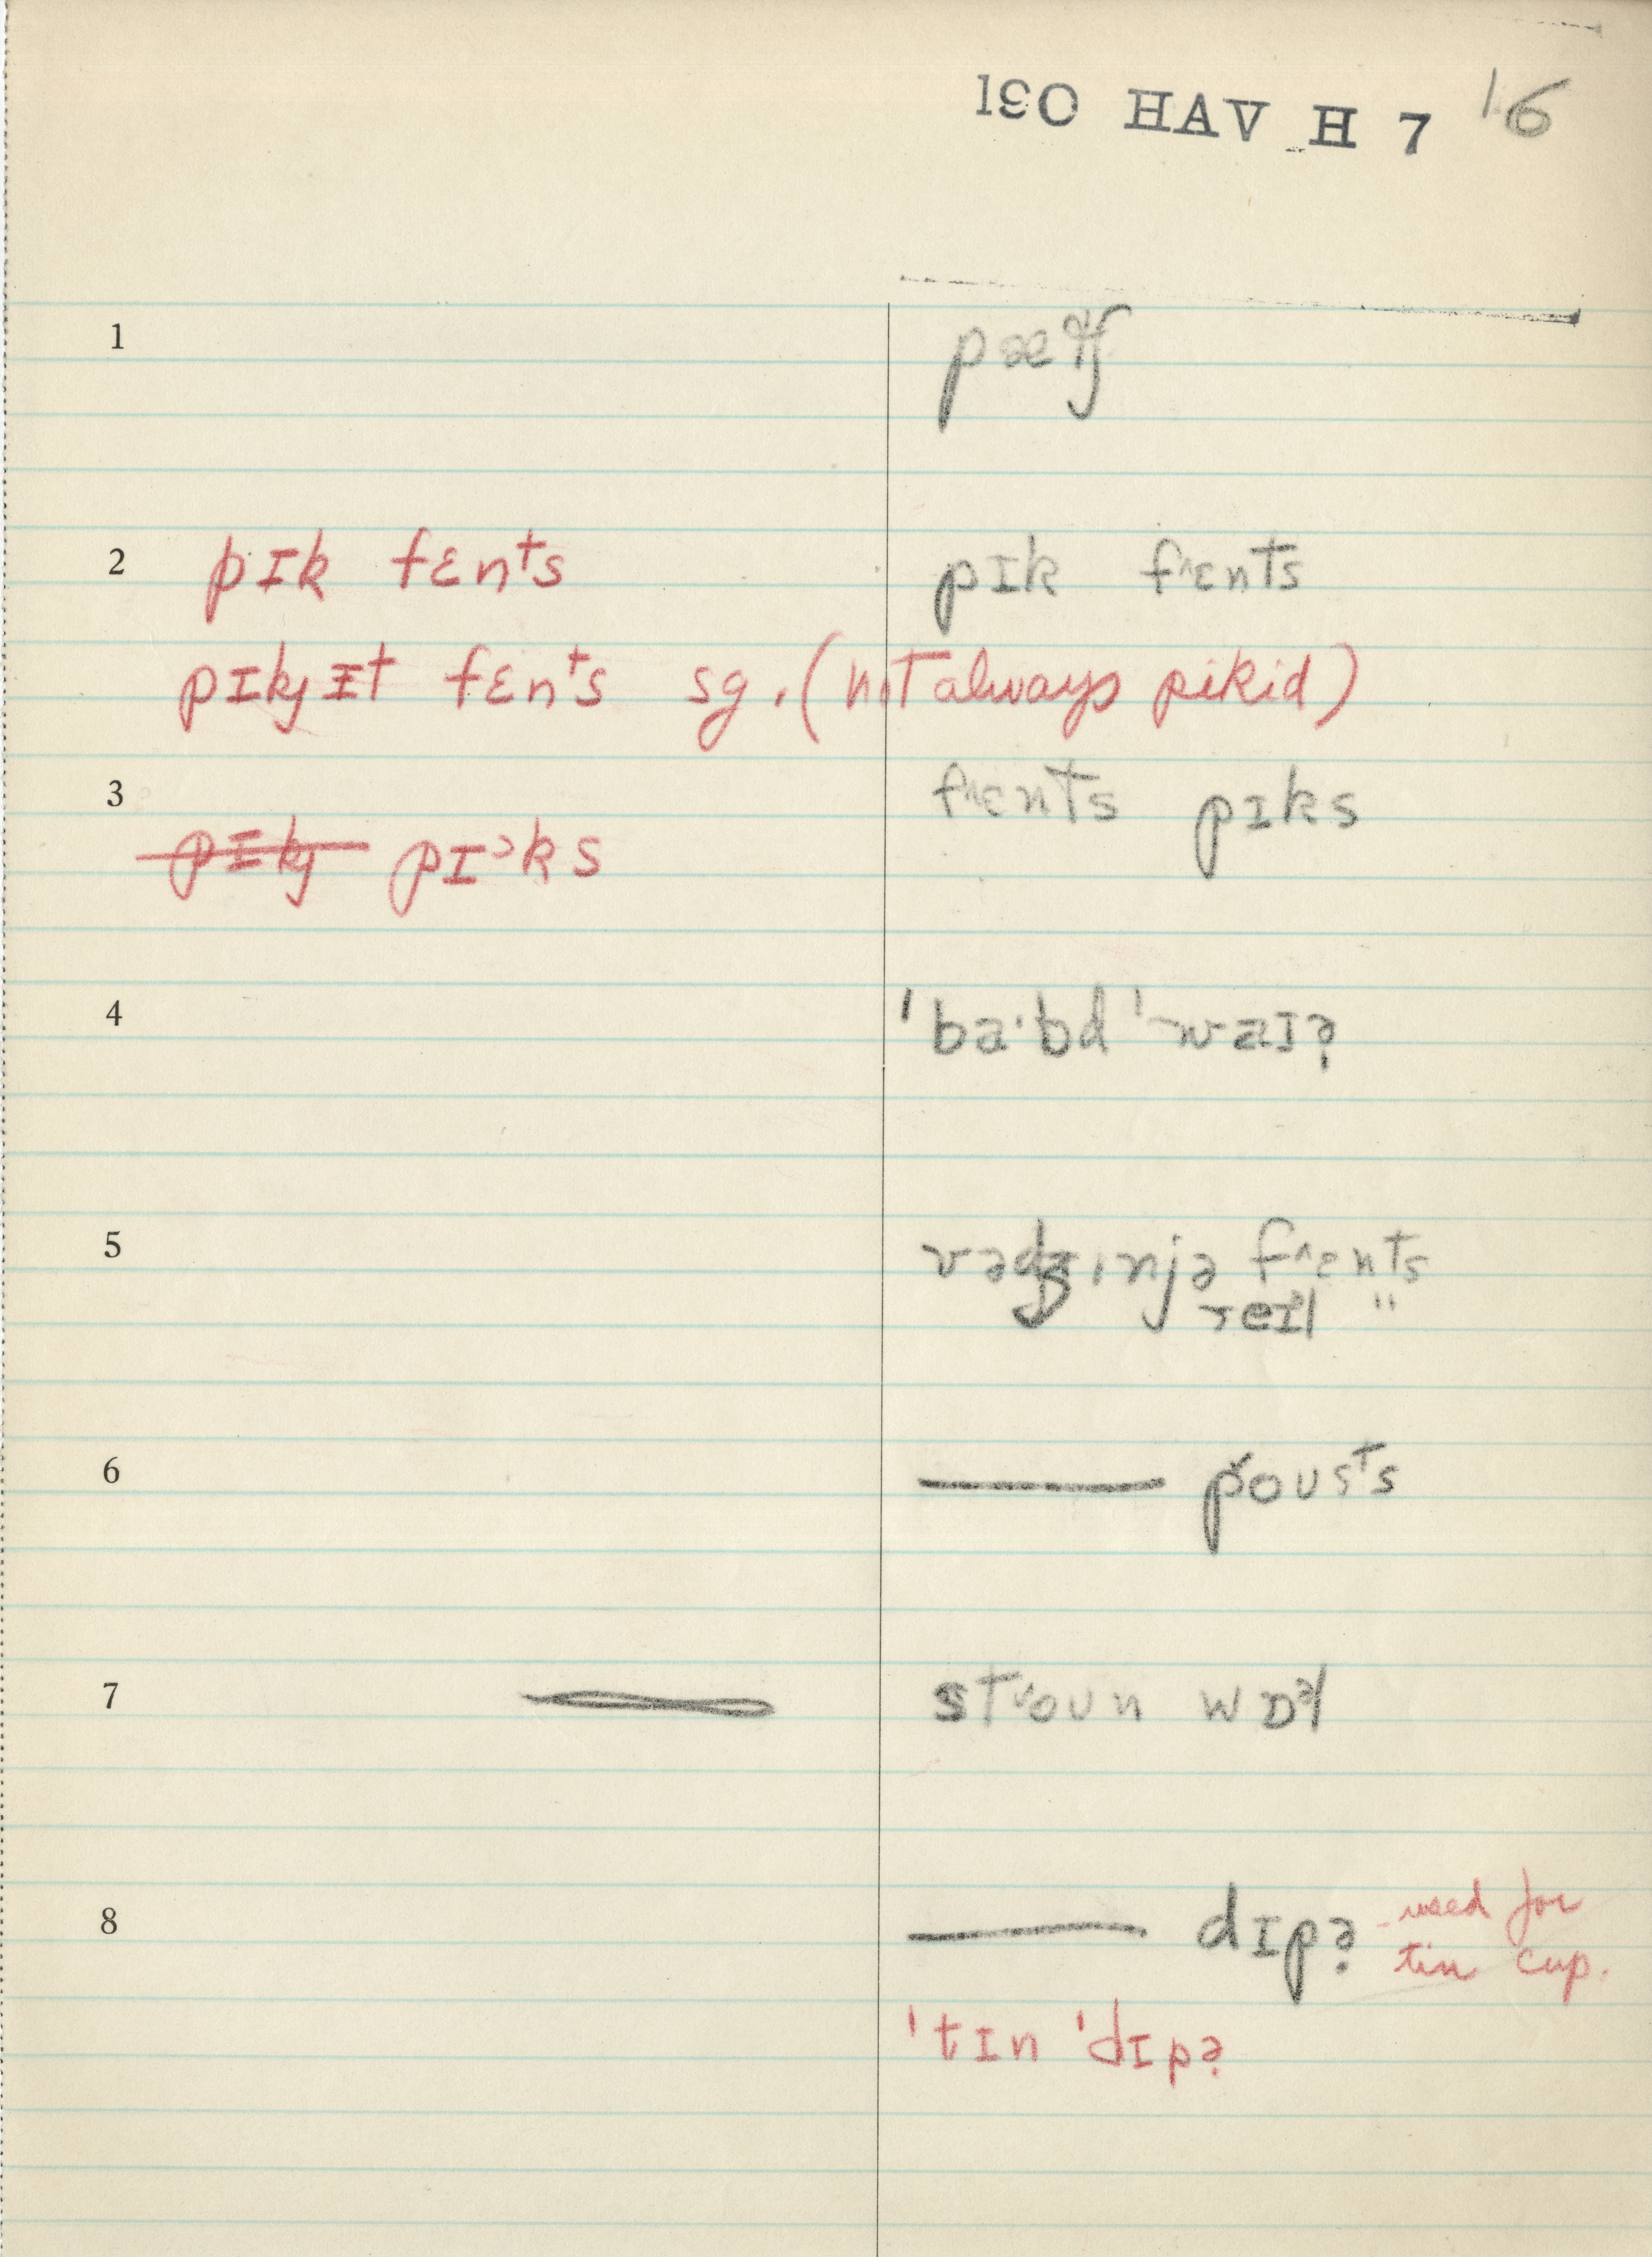 190 HAV H 7 16
1 pætʃ
2 pɪk fɛnts pɪk fɛnts
pɪkjɪt fɛnts sg. (not always pikid)
3 fɛnts pɪks
pɪkj pɪ˃ks
4 ˈbaˑbd ˈwaɪɚ
5 vədʒɪnjə fɛnts
reɪl "
6 poʊsts
7 stoʊn wɒəl
8 dɪpɚ - used for
tin cup.
ˈtɪn ˈdɪpɚ